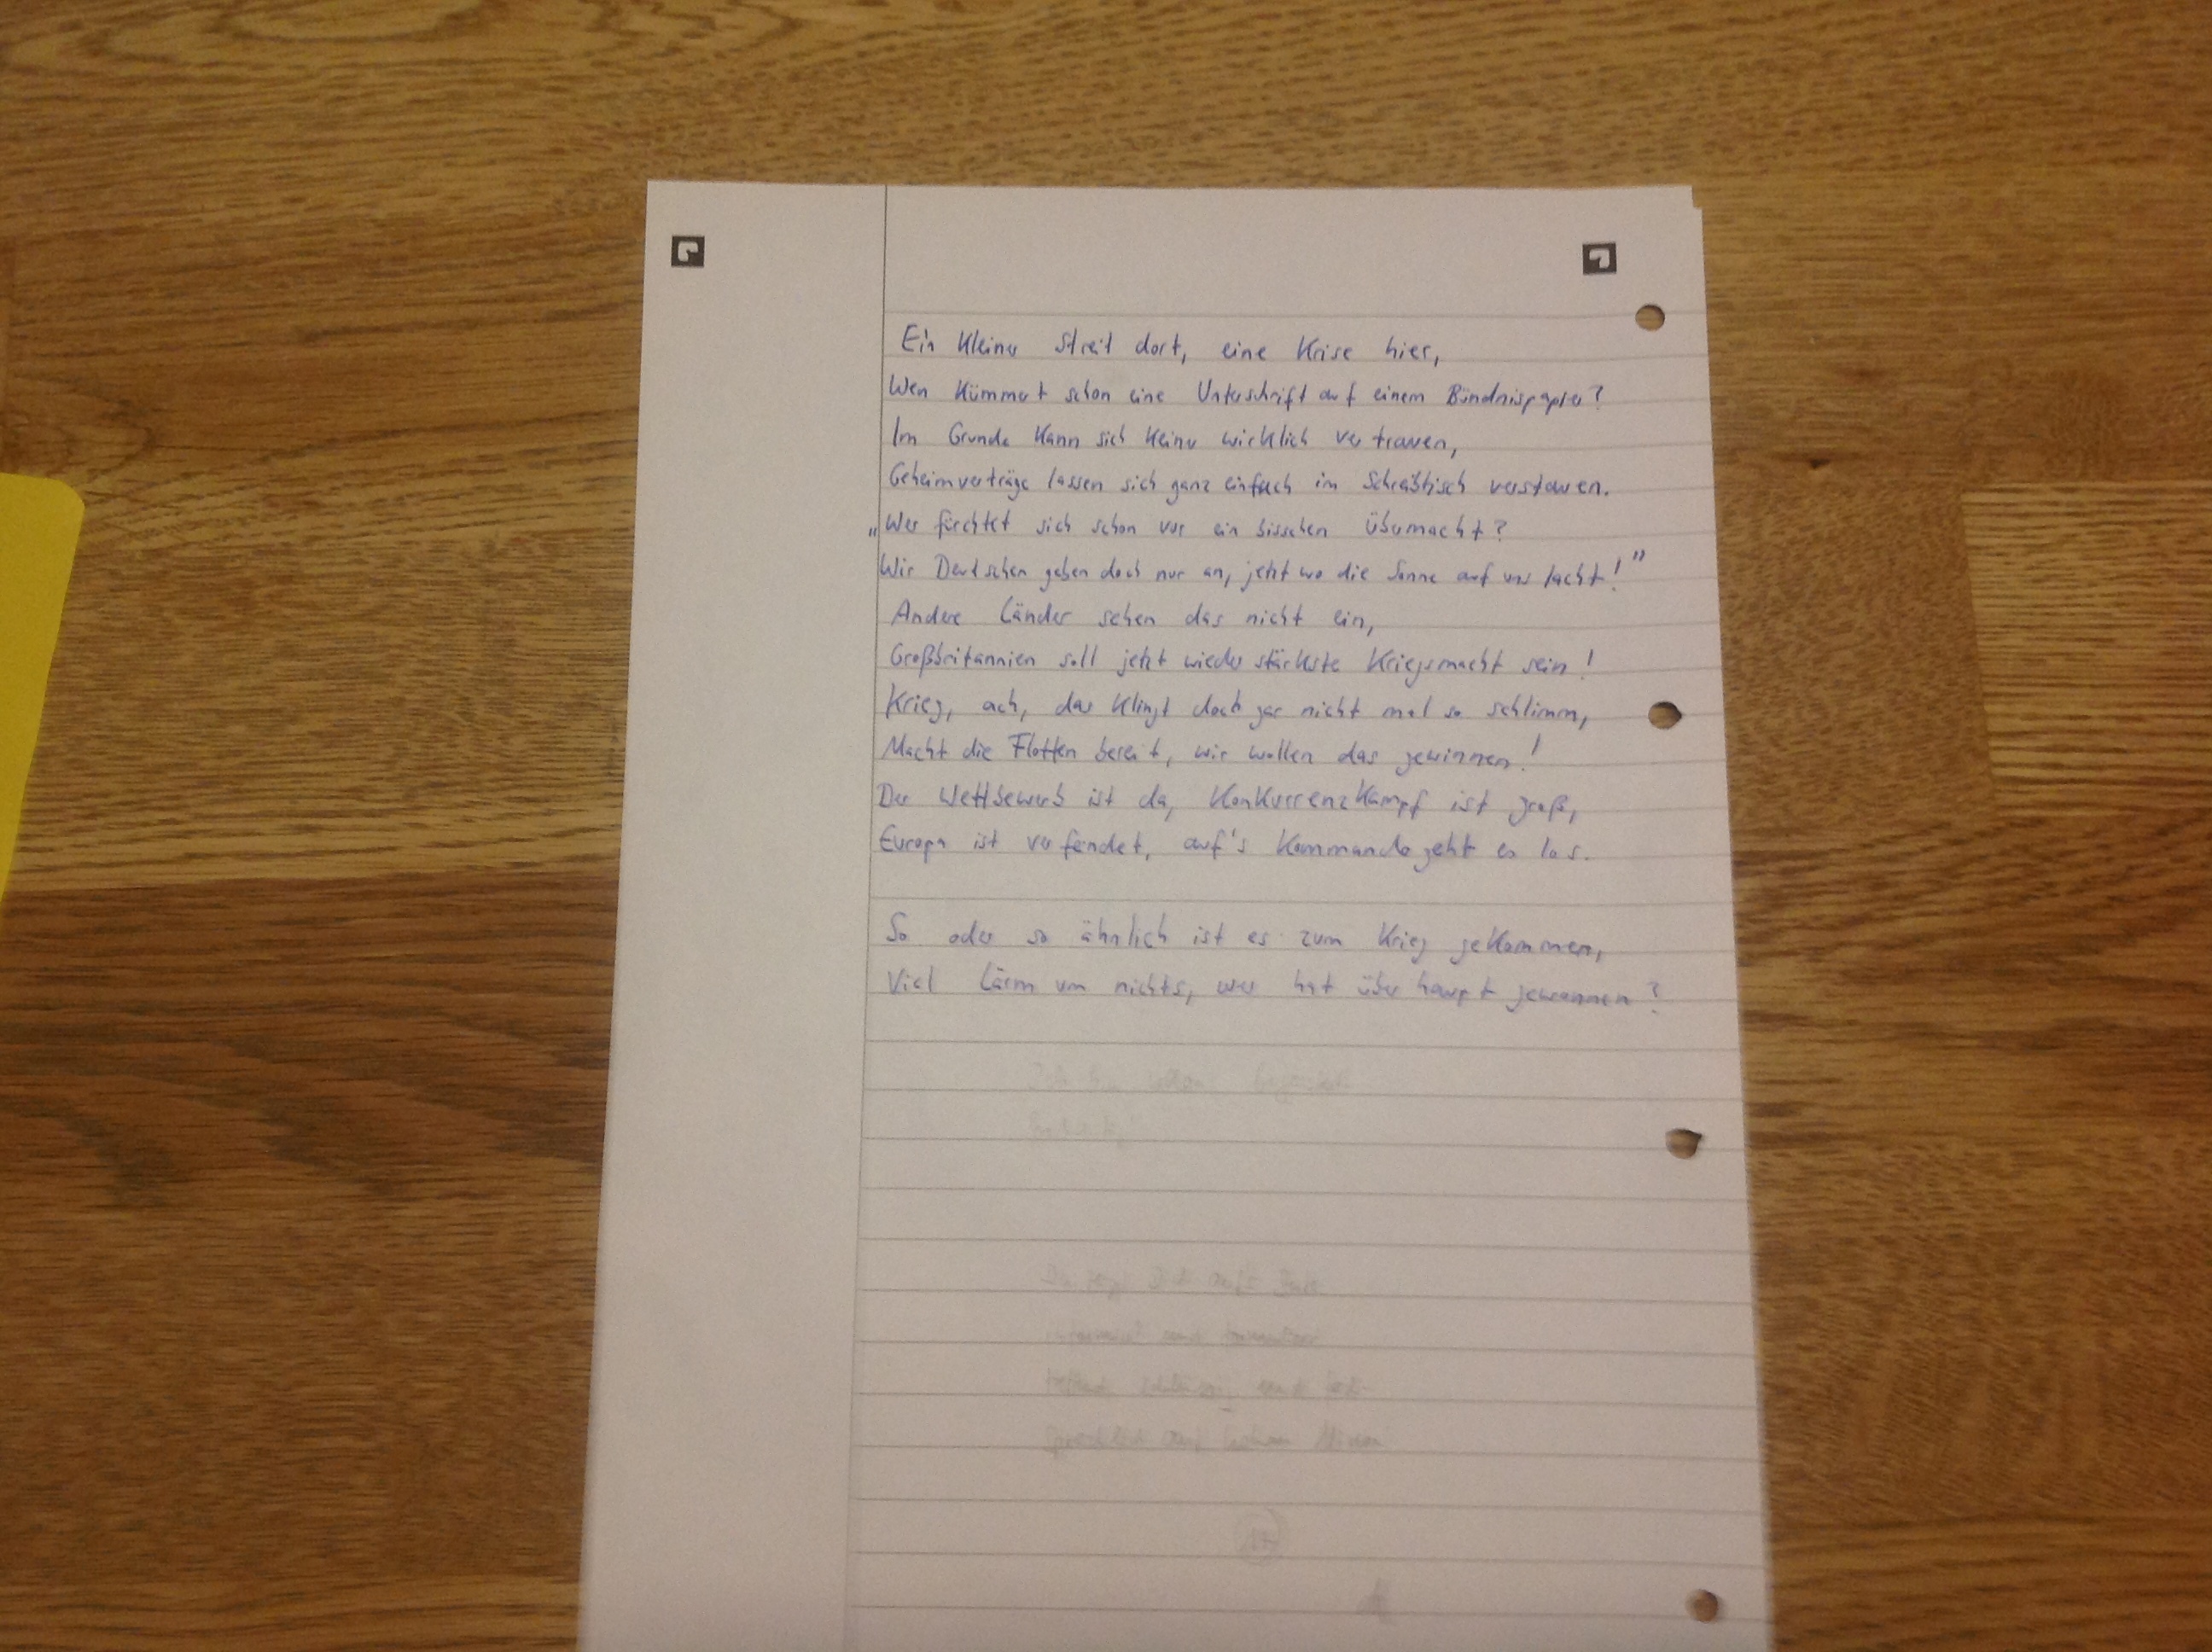 Ein kleiner Streit dort, eine Krise hier,
Wen kümmert schon eine Unterschrift auf einem Bündnispapier?
Im Grunde kann sich keiner wirklich vertrauen,
Geheimverträge lassen sich ganz einfach im Schreibtisch verstauen.
„Wer fürchtet sich schon vor ein bisschen Übermacht?
Wir Deutschen geben doch nur an, jetzt wo die Sonne auf uns lacht!”
Andere Länder sehen das nicht ein,
Großbritannien soll jetzt wieder stärkste Kriegsmacht sein!
Krieg, ach, das klingt doch gar nicht mal so schlimm,
Macht die Flotten bereit, wir wollen das gewinnen!
Der Wettbewerb ist da, Konkurrenzkampf ist groß,
Europa ist verfeindet, auf's Kommando geht es los.
So oder so ähnlich ist es zum Krieg gekommen,
Viel Lärm um nichts, wer hat überhaupt gewonnen?